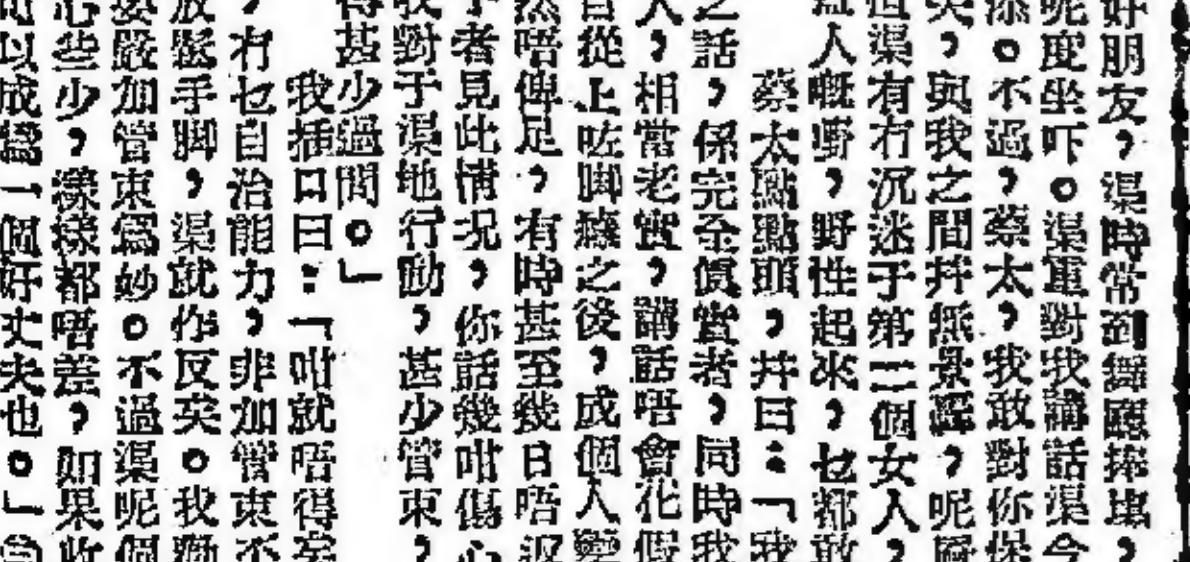 好朋友，渠時常到舞廳捧場，
呢度坐吓。渠重對我講話渠今
添。不過，蔡太，我敢對你保
失，與我之間幷無景轟，呢層
但渠有冇沉迷于第二個女人，
人嘅嘢，野性起來，乜都敢
蔡太點點頭，幷曰：「我
之話，係完全眞實者，同時我
人，相當老實，講話唔會化假
自從上咗脚癮之後，成個人變
然唔俾足，有時甚至幾日唔返
者見此情况，你話幾咁傷心
我對于渠地行動，甚少管束，
得甚少過問。」
我插口曰：「咁就唔得矣
，冇乜自治能力，非加管束不
放鬆手脚，渠就作反矣。我勸
要嚴加管束爲妙。不過渠呢個
心些少，樣樣都唔差，如果收
可以成爲一個好丈夫也。」